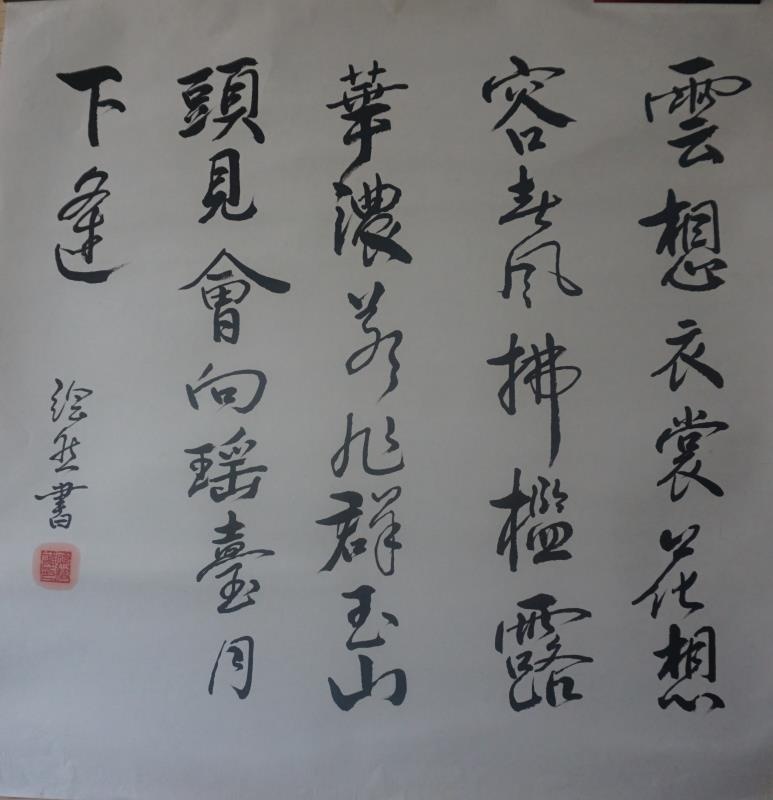 雲想衣裳花想
容春風拂檻露
華濃若非群玉山
頭見會向瑤臺月
下逢
然書